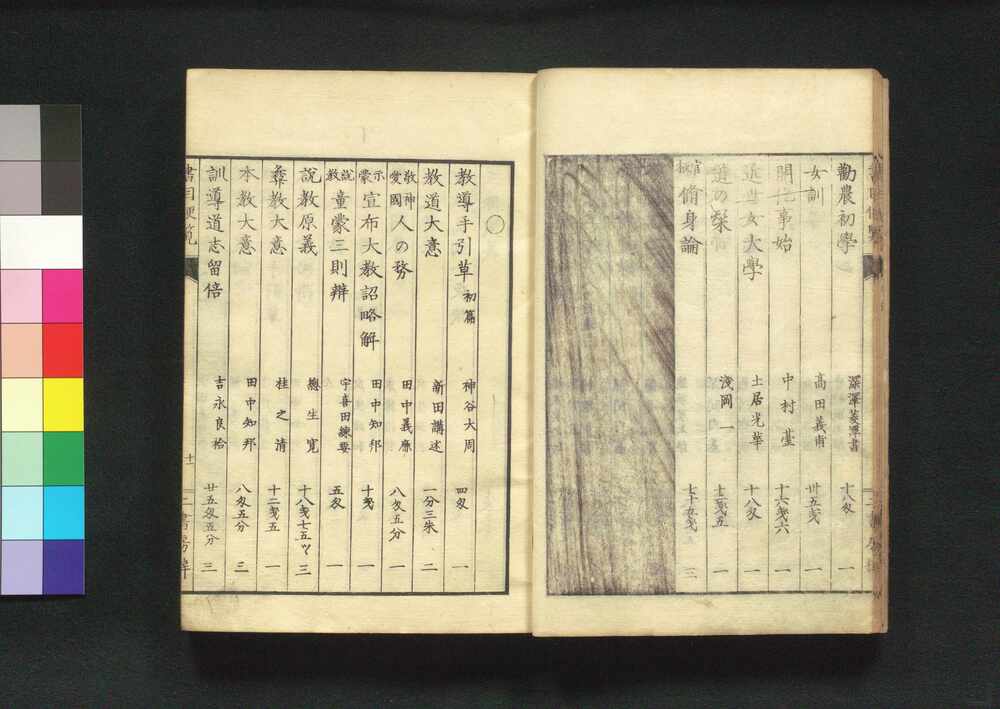 勸農初學 深澤菱潭書 十八匁 一
女訓 高田義甫 廿五匁 一
開化事始 中村 十六匁六 一
近世女大學 土居光華 十八匁 一
道の栞 淺岡一 十二匁五 一
脩身論 七十五匁 三
教導手引草 初篇 神谷大周 四匁 一
教道大意 新田講述 一分三朱 二
敬神愛國 人の務 田中義廉 八匁五分 一
示蒙 宣布大教詔略解 田中知邦 十匁 一
説教 童蒙三則辨 宇喜田練要 五匁 一
説教原義 總生寛 十八匁七五 三
彜教大意 桂之清 十二匁五 一
本教大意 田中知邦 八匁五分 三
訓導道志留倍 吉永良裕 廿五匁五分 三
書目便覧 十一 二書房梓